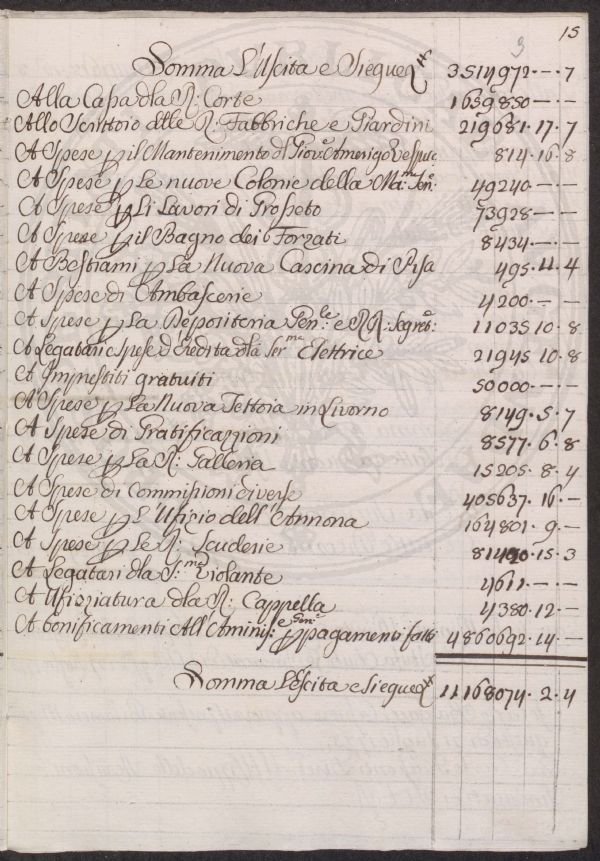 15
9
Somma L'Uscita e Siegue 3514972.—.7
Alla Casa dla R: Corte 1639850—.—
Allo Scrittoio dlle R: Fabbriche e Giardini 219681.17.7
A Spese p il Mantenimento di Giov: Amerigo Vespuc 814.16.8
A Spese p Le nuove Colonie della Ma:m Sen: 49240—.—
A Spese p Li Lavori di Grosseto 73928—.—
A Spese p il Bagno dei Forzati 8434.—.—
A Bestiami p La Nuova Cascina di Pisa 495.11.4
A Spese di Ambascerie 4200.—.—
A Spese p La Depositeria Gen:le e RR: Segret: 11035 10.8
A Legatari e spese d'Eredita dla Ser:me Elettrice 21945 10.8
A Imprestiti gratuiti 50000—.—
A Spese p La Nuova Tettoia in Livorno 8149.5.7
A Spese di Gratificazzioni 8577.6.8
A Spese p La R: Galleria 15205.8.4
A Spese di Commissioni diverse 405637.16—
A Spese p L'Ufizio dell'Annona 164801.9—
A Spese p Le R: Scuderie 81490.15.3
A Legatari dla S:me Violante 4611—.—
A Ufiziatura dla R: Cappella 4380.12—
A bonificamenti All'Amminis: Gen:e p pagamenti fatti 4860692.14—
Somma L'Escita e Siegue 11168074.2.4